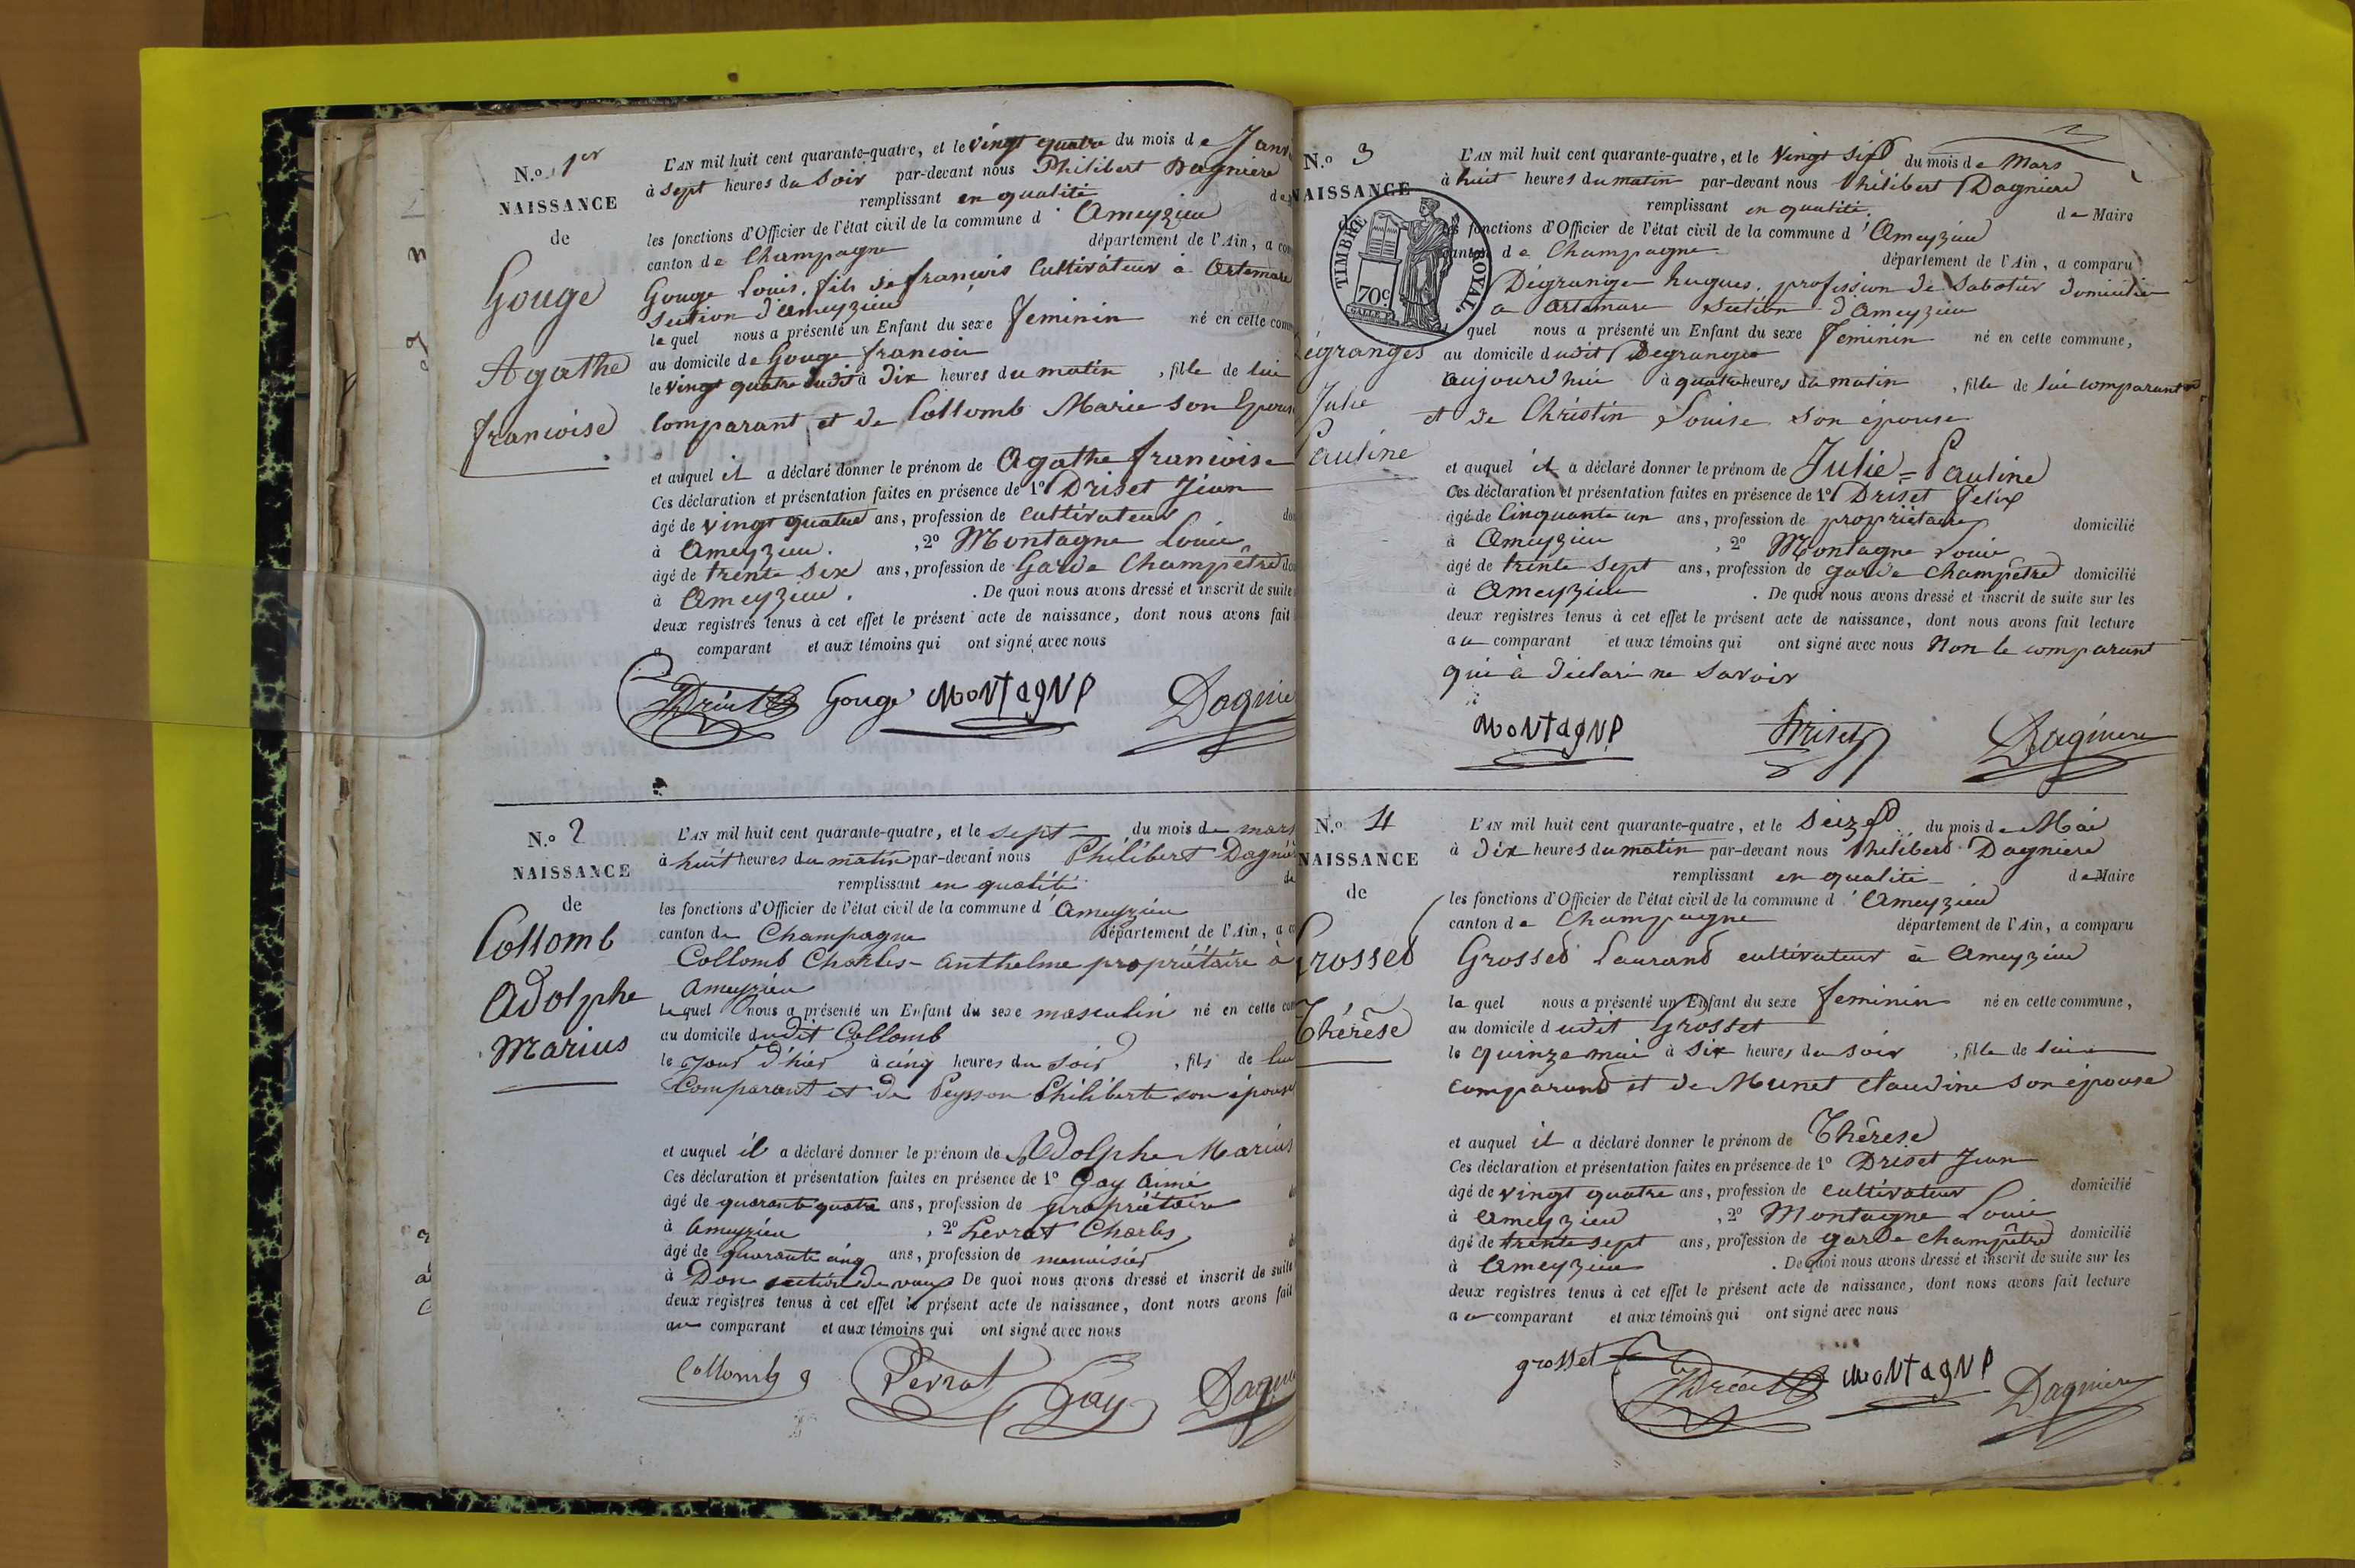 N.o 1er
NAISSANCE
de
Gouge
Agathe
francoise
L'AN mil huit cent quarante-quatre, et le vingt quatre du mois de Janv
à sept heures du soir par-devant nous Philibert Dagniere
remplissant en qualité de
les fonctions d'Officier de l'état civil de la commune d' Ameyzieu
canton de Champagne département de l'Ain, a com
Gouge Louis, fils de francois Cultivateur à Artemare
Section d'ameyzieu
lequel nous a présenté un Enfant du sexe feminin né en cette comm
au domicile de Gouge francois
le vingt quatre dudit à dix heures du matin, fille de lui
Comparant et de Collomb Marie son Epous
et auquel il a déclaré donner le prénom de Agathe francoise
Ces déclaration et présentation faites en présence de 1o Driset Jean
âgé de vingt quatre ans, profession de cultivateur do
à Ameyzieu. , 2o Montagne Louis
âgé de trente six ans, profession de Garde Champêtre do
à Ameyzieu. . De quoi nous avons dressé et inscrit de suite
deux registres tenus à cet effet le présent acte de naissance, dont nous avons fait
a comparant et aux témoins qui ont signé avec nous
Gouge MONTAGNE Dagnie
N.o 2
NAISSANCE
de
Collomb
Adolphe
Marius
L'AN mil huit cent quarante-quatre, et le sept du mois de mars
à huit heures du matin par-devant nous Philibert Dagniè
remplissant en qualité de
les fonctions d'Officier de l'état civil de la commune d' Ameyzieu
canton de Champagne département de l'Ain, a c
Collomb Charles-Anthelme propriétaire à
Ameyzieu
lequel nous a présenté un Enfant du sexe masculin né en cette com
au domicile dudit Collomb
le jour d'hier à cinq heures du soir, fils de lui
Comparant et de Peysson Philiberte son épouse
et auquel il a déclaré donner le prénom de Adolphe Marius
Ces déclaration et présentation faites en présence de 1o Gay Aimé
âgé de quarante quatre ans, profession de propriétaire
à Ameyzieu , 2o Perrat Charles
âgé de quarante cinq ans, profession de menuisier
à Don section de De quoi nous avons dressé et inscrit de suite
deux registres tenus à cet effet le présent acte de naissance, dont nous avons fait
au comparant et aux témoins qui ont signé avec nous
Collomb Perrat Gay Dagnie
N.o 3
NAISSANCE
TIMBRE ROYAL
70c
égranges
Julie
Pauline
L'AN mil huit cent quarante-quatre, et le vingt six du mois de Mars
à huit heures du matin par-devant nous Philibert Dagniere
remplissant en qualité de Maire
les fonctions d'Officier de l'état civil de la commune d' Ameyzieu
canton de Champagne département de l'Ain, a comparu
Dégranges hugues, profession de Sabotier domicilié
a Artemare Section d'Ameyzieu
quel nous a présenté un Enfant du sexe feminin né en cette commune,
au domicile dudit Degranges
aujourd'hui à quatre heures du matin, fille de lui comparant
et de Christin Louise son épouse
et auquel il a déclaré donner le prénom de Julie = Pauline
Ces déclaration et présentation faites en présence de 1o Driset Felix
âgé de Cinquante un ans, profession de propriétaire domicilié
à Ameyzieu , 2o Montagne Louis
âgé de trente sept ans, profession de garde champêtre domicilié
à Ameyzieu . De quoi nous avons dressé et inscrit de suite sur les
deux registres tenus à cet effet le présent acte de naissance, dont nous avons fait lecture
au comparant et aux témoins qui ont signé avec nous Non le comparant
qui à déclaré ne savoir
MONTAGNE Driset Dagniere
N.o 4
NAISSANCE
de
Grosset
Thérèse
L'AN mil huit cent quarante-quatre, et le seize du mois de Mai
à dix heures du matin par-devant nous Philibert Dagniere
remplissant en qualite de Maire
les fonctions d'Officier de l'état civil de la commune d' Ameyzieu
canton de Champagne département de l'Ain, a comparu
Grosset Laurand cultivateur à Ameyzieu
lequel nous a présenté un Enfant du sexe feminin né en cette commune,
au domicile dudit Grosset
le quinze mai à six heures du soir, fille de lui
comparant et de Munet claudine son épouse
et auquel il a déclaré donner le prénom de Thérèse
Ces déclaration et présentation faites en présence de 1o Driset Jean
âgé de vingt quatre ans, profession de cultivateur domicilié
à Ameyzieu , 2o Montagne Louis
âgé de trente sept ans, profession de garde champêtre domicilié
à Ameyzieu . De quoi nous avons dressé et inscrit de suite sur les
deux registres tenus à cet effet le présent acte de naissance, dont nous avons fait lecture
au comparant et aux témoins qui ont signé avec nous
grosset MONTAGNE Dagniere